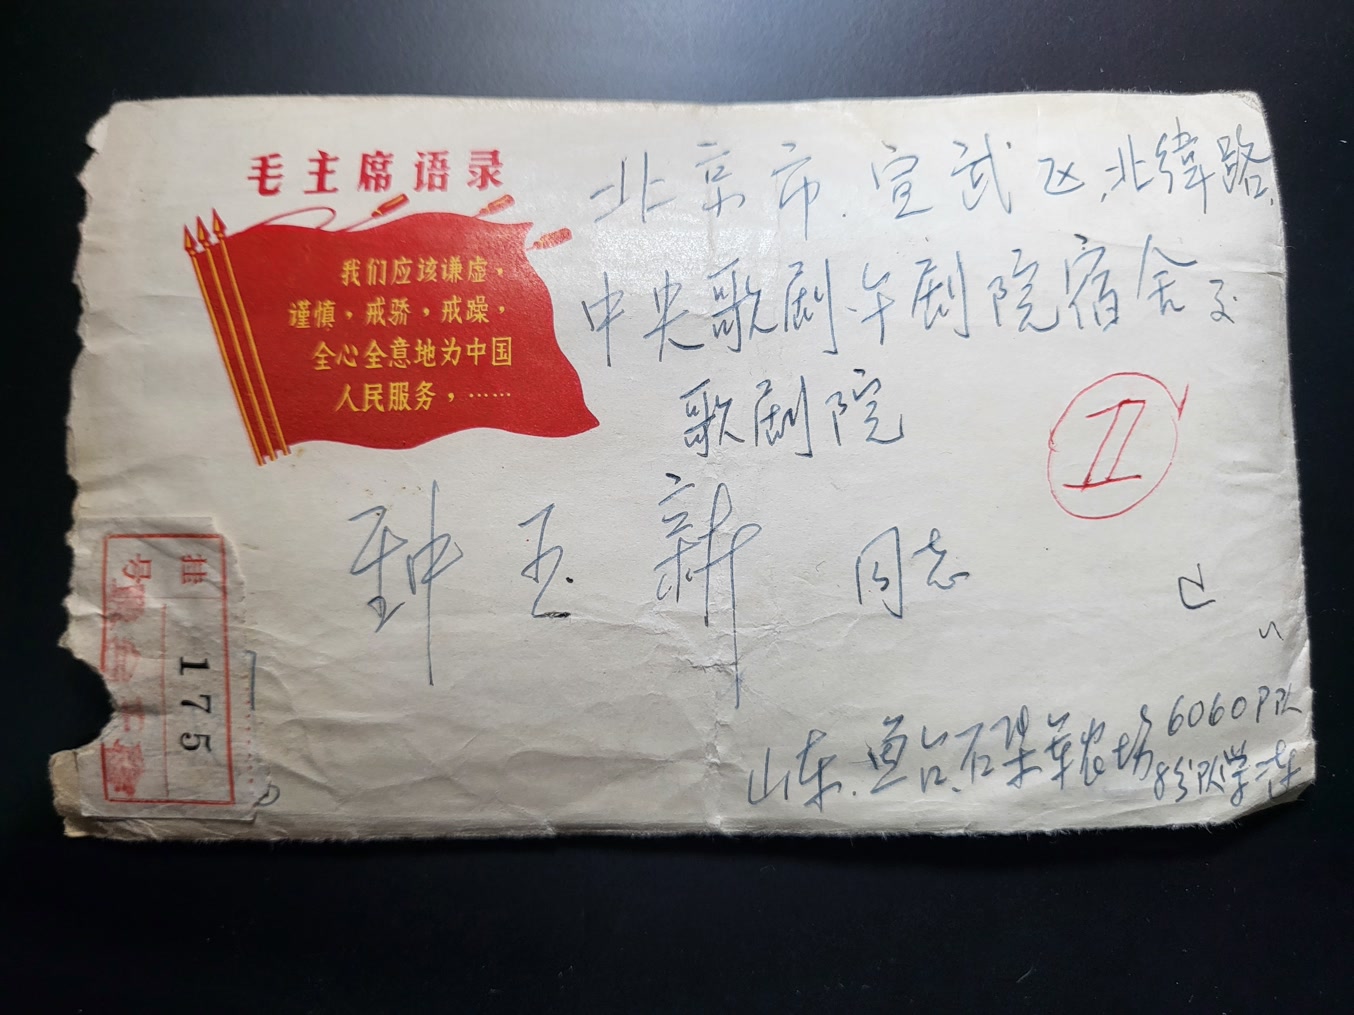 毛主席语录
我们应该谦虚，
谨慎，戒骄，戒躁，
全心全意地为中国
人民服务，……
北京市.宣武区,北纬路,
中央歌剧午剧院宿舍交
歌剧院
II
钟玉新 同志
山东.鱼台.石架军农场6060P队
8分队学一连
挂号
175